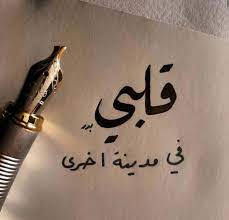 قلبي
في مدينة اخرى